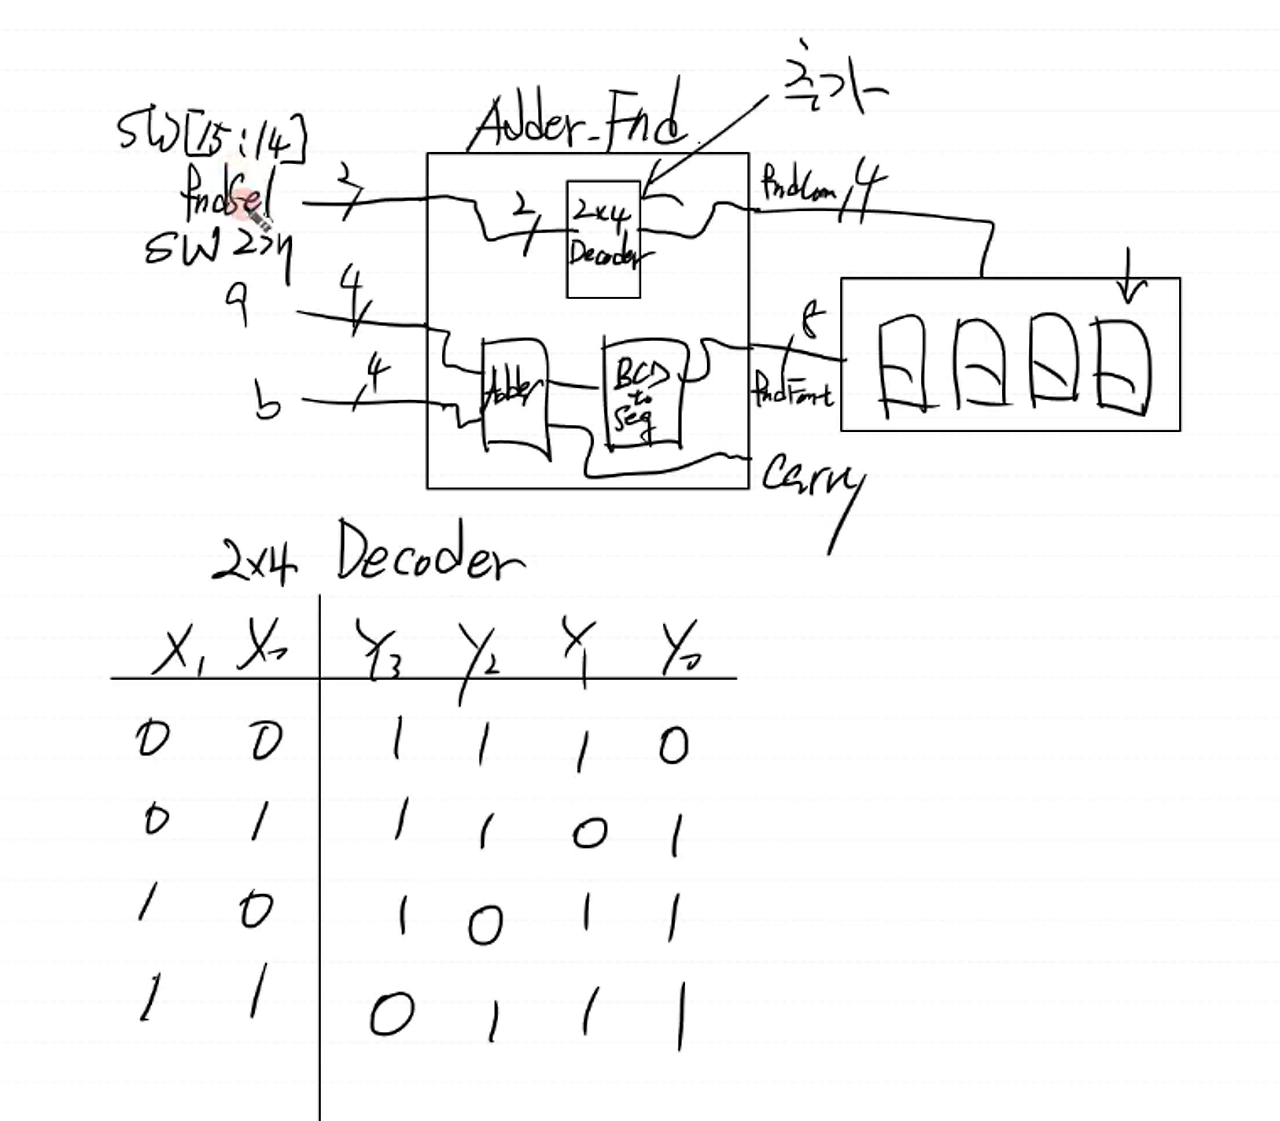 추가
Adder_Fnd
SW[15:14]
fndSel
SW 2개
2
2
2x4
Decoder
fndCom
4
a
4
b
4
Adder
BCD
to
Seg
8
fndFont
Carry
2x4 Decoder
X1 X0 Y3 Y2 Y1 Y0
0 0 1 1 1 0
0 1 1 1 0 1
1 0 1 0 1 1
1 1 0 1 1 1